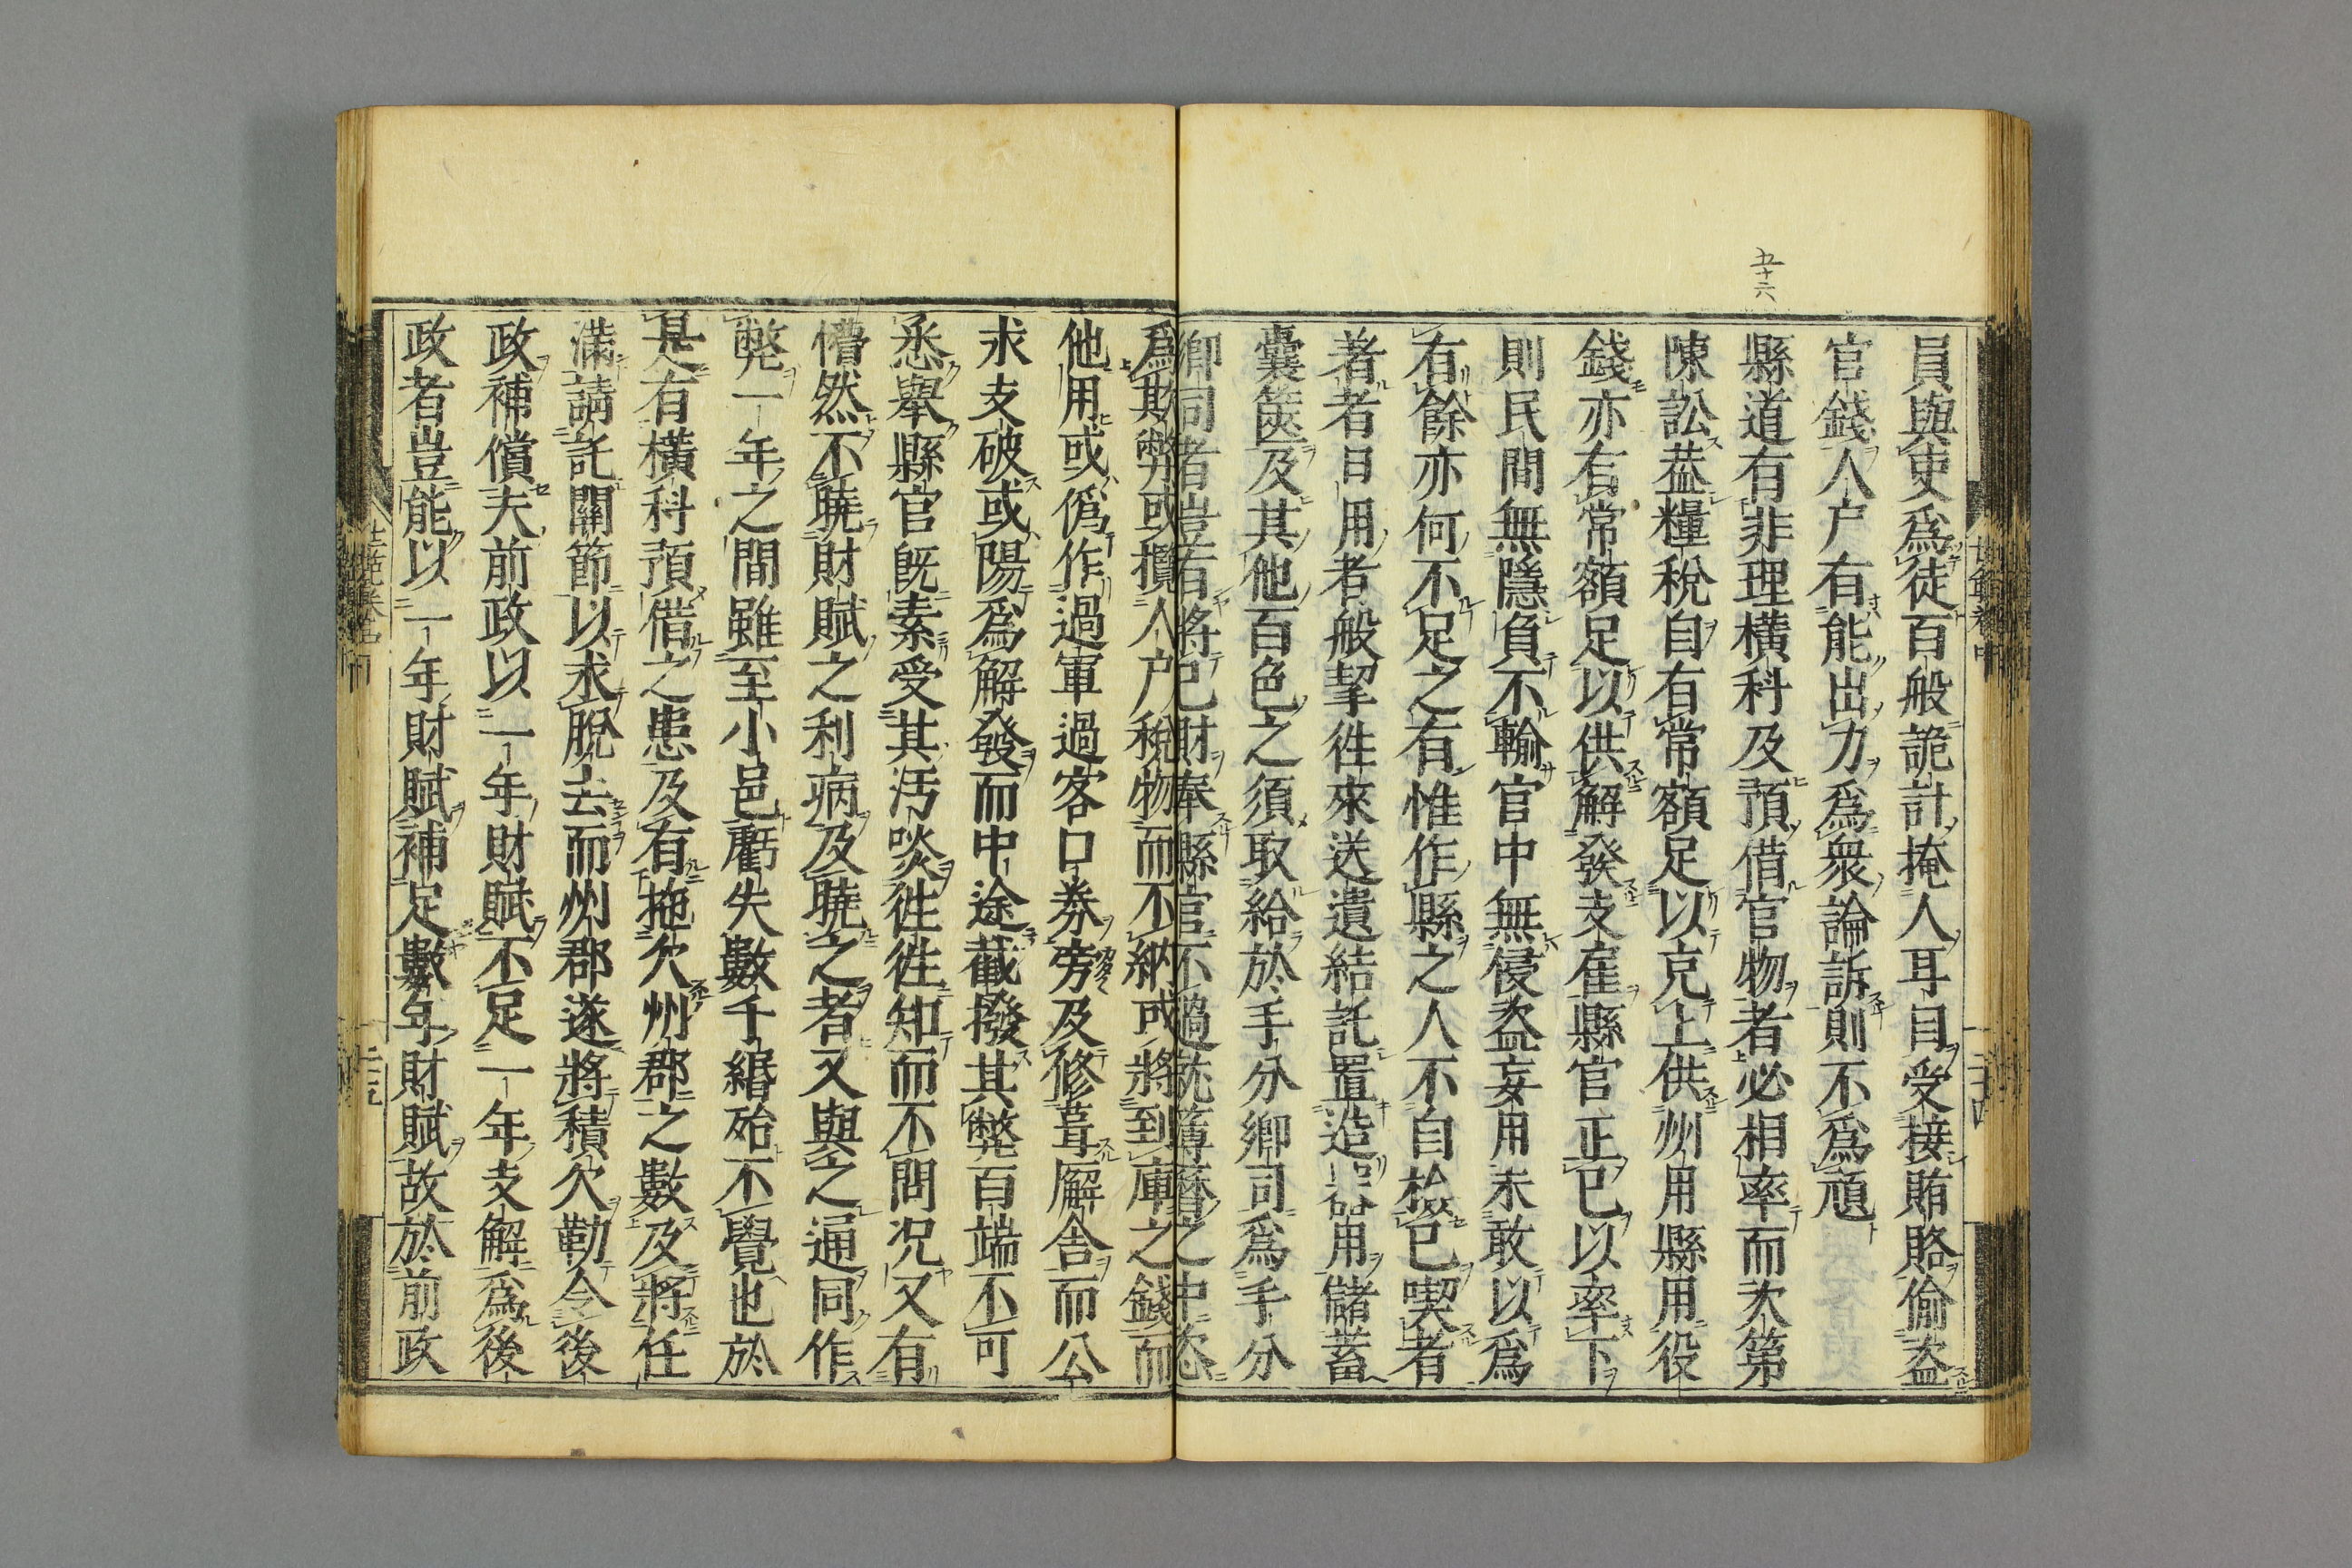 五十六
員與吏爲徒百般詭計掩人耳目受接賄賂偷盜
官錢人戶有能出力爲衆論訴則不爲頑
縣道有非理橫科及預借官物者必相率而次第
陳訟葢糧稅自有常額足以克上供州用縣用役
錢亦有常額足以供解發支雇縣官正已以率下
則民間無隱負不輸官中無侵盜妄用未敢以爲
有餘亦何不足之有惟作縣之人不自檢已喫者
著者日用者般挈徃來送遺結託置造器用儲蓄
囊篋及其他百色之須取給於手分鄉司爲手分
鄉司者豈若將已財奉縣官不過就簿曆之中恣
爲欺弊或攬人戶稅物而不納或將到庫之錢而
他用或僞作過軍過客口券旁及修葺廨舎而公
求支破或陽爲解發而中途截撥其弊百端不可
悉舉縣官既素受其汚啖徃徃知而不問况又有
懵然不曉財賦之利病及曉之者又與之通同作
弊一年之間雖至小邑虧失數千緡殆不覺也於
是有橫科預借之患及有拖欠州郡之數及將任
滿請託關節以求脫去而州郡遂將積欠勒令後
政補償夫前政以一年財賦不足一年支解爲後
政者豈能以一年財賦補足數年財賦故於前政